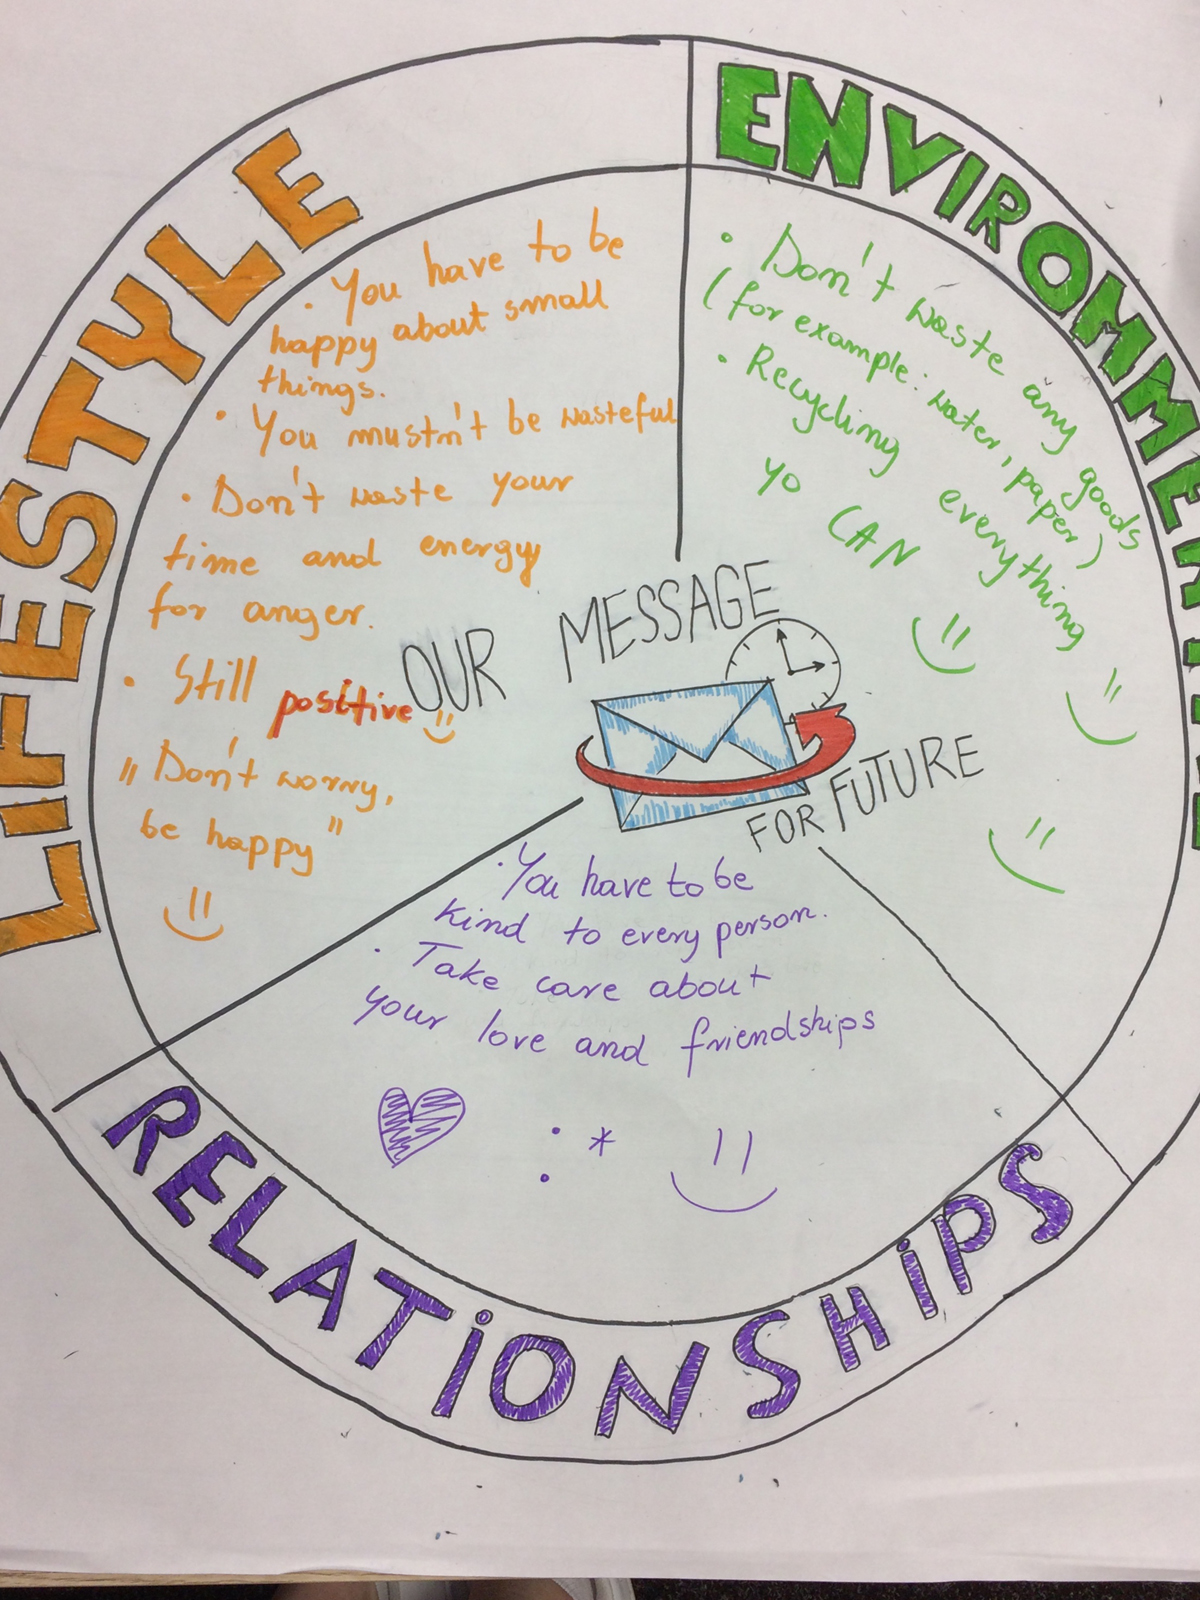 LIFESTYLE
· You have to be
happy about small
things.
· You mustn't be wasteful
· Don't waste your
time and energy
for anger.
· Still positive
„Don't worry,
be happy"
ENVIROMMENTAL
· Don't waste any goods
(for example: water, paper)
· Recycling everything
yo CAN
OUR MESSAGE
FOR FUTURE
· You have to be
kind to every person.
· Take care about
your love and friendships
: *
RELATiONSHiPS